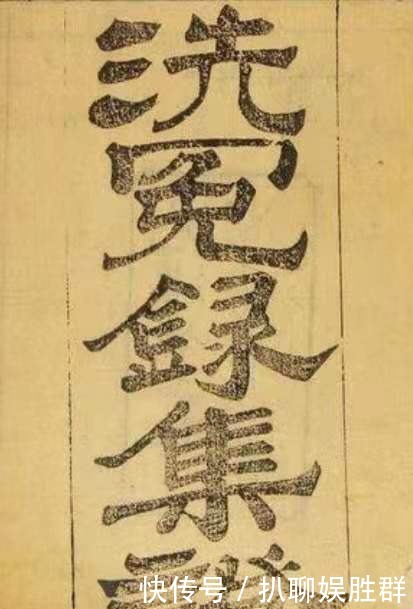 洗冤録集
快传号 / 扒聊娱胜群